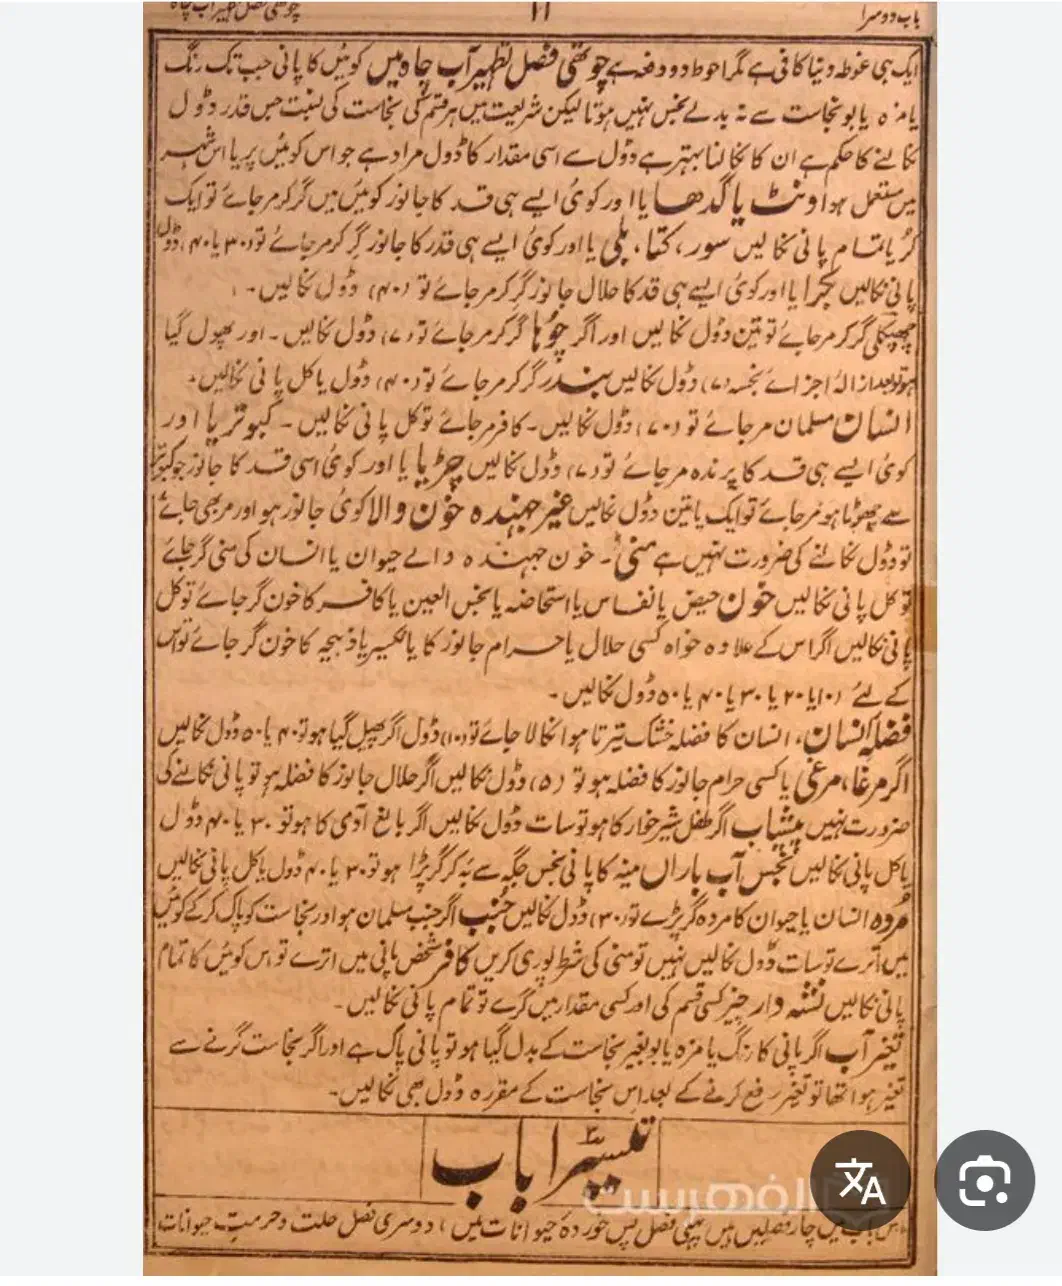 باب دوسرا ۱۱ چوتھی فصل تطہیر آب چاہ
ایک ہی غوطہ دنیا کافی ہے مگر احوط دو دفعہ ہے چوتھی فصل تطہیر آب چاہ میں کوئیں کا پانی جب تک رنگ
یا مزہ یا بو نجاست سے نہ بدلے نجس نہیں ہوتا لیکن شریعت میں ہر قسم کی نجاست کی نسبت جس قدر ڈول
نکالنے کا حکم ہے ان کا نکالنا بہتر ہے ڈول سے اسی مقدار کا ڈول مراد ہے جو اس کوئیں پر یا اس شہر
میں مستعمل ہو اونٹ یا گدھا یا اور کوئی ایسے ہی قد کا جانور کوئیں میں گر کر مر جائے تو ایک
کُر یا تمام پانی نکالیں سور، کتا، بلی یا اور کوئی ایسے ہی قدر کا جانور گر کر مر جائے تو (۳۰ یا ۴۰) ڈول
پانی نکالیں بکرا یا اور کوئی ایسے ہی قد کا حلال جانور گر کر مر جائے تو (۴۰) ڈول نکالیں۔
چھپکلی گر کر مر جائے تو تین ڈول نکالیں اور اگر چوہا گر کر مر جائے تو (۷) ڈول نکالیں۔ اور پھول گیا
ہو تو بعد ازالہ اجزائے نجسہ (۷) ڈول نکالیں بندر گر کر مر جائے تو (۴۰) ڈول یا کل پانی نکالیں۔
انسان مسلمان مر جائے تو (۷۰) ڈول نکالیں۔ کافر مر جائے تو کل پانی نکالیں۔ کبوتر یا اور
کوئی ایسے ہی قد کا پرندہ مر جائے تو (۷) ڈول نکالیں چڑیا یا اور کوئی اسی قد کا جانور جو کبوتر
سے چھوٹا ہو مر جائے تو ایک یا تین ڈول نکالیں غیر جہندہ خون والا کوئی جانور ہو اور مر بھی جائے
تو ڈول نکالنے کی ضرورت نہیں ہے منی۔ خون جہندہ والے حیوان یا انسان کی منی گر جائے
تو کل پانی نکالیں خون حیض یا نفاس یا استحاضہ یا نجس العین یا کافر کا خون گر جائے تو کل
پانی نکالیں اگر اس کے علاوہ خواہ کسی حلال یا حرام جانور کا یا نکسیر یا ذبیحہ کا خون گر جائے تو اس
کے لئے (۱۰ یا ۲۰ یا ۳۰ یا ۴۰ یا ۵۰ ڈول نکالیں۔
فضلہ انسان، انسان کا فضلہ خشک تیرتا ہوا نکالا جائے تو (۱۰) ڈول اگر پھیل گیا ہو تو ۴۰ یا ۵۰ ڈول نکالیں
اگر مرغا، مرغی یا کسی حرام جانور کا فضلہ ہو تو (۵) ڈول نکالیں اگر حلال جانور کا فضلہ ہو تو پانی نکالنے کی
ضرورت نہیں پیشاب اگر طفل شیر خوار کا ہو تو سات ڈول نکالیں اگر بالغ آدمی کا ہو تو ۳۰ یا ۴۰ ڈول
یا کل پانی نکالیں نجس آب باراں مینہ کا پانی نجس جگہ سے بہ کر گر پڑا ہو تو ۳۰ یا ۴۰ ڈول یا کل پانی نکالیں
مردہ انسان یا حیوان کا مردہ گر پڑے تو (۳۰) ڈول نکالیں جُنب اگر جنب مسلمان ہو اور نجاست کو پاک کر کے کوئیں
میں اترے تو سات ڈول نکالیں نہیں تو منی کی شرط پوری کریں کافر شخص پانی میں اترے تو اس کوئیں کا تمام
پانی نکالیں نشہ دار چیز کسی قسم کی اور کسی مقدار میں گرے تو تمام پانی نکالیں۔
تغیر آب اگر پانی کا رنگ یا مزہ یا بو بغیر نجاست کے بدل گیا ہو تو پانی پاک ہے اور اگر نجاست گرنے سے
تغیر ہوا تھا تو تغیر رفع کرنے کے بعد اس نجاست کے مقررہ ڈول بھی نکالیں۔
تیسرا باب
اس باب میں چار فصلیں ہیں پہلی فصل پس خوردہ حیوانات میں، دوسری فصل حلت و حرمت حیوانات
الفهرست